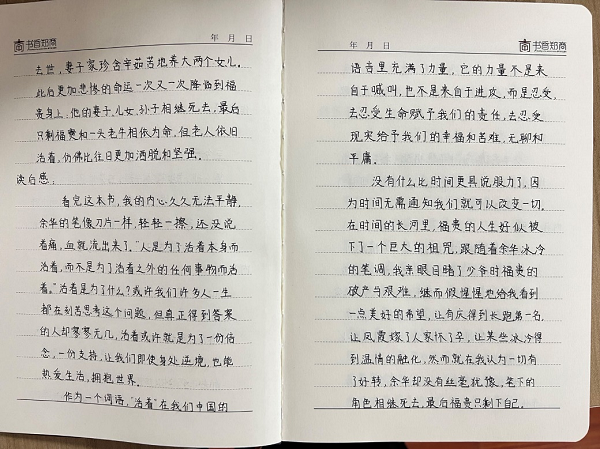 书香知商
年 月 日
去世，妻子家珍含辛茹苦地养大两个女儿。
此后更加悲惨的命运一次又一次降临到福
贵身上，他的妻子儿女，孙子相继死去，最后
只剩福贵和一头老牛相依为命，但老人依旧
活着，仿佛比往日更加洒脱和坚强。
读后感：
看完这本书，我的内心久久无法平静，
余华的笔像刀片一样，轻轻一擦，还没说
看痛，血就流出来了。“人是为了活着本身而
活着，而不是为了活着之外的任何事物而活
着。”活着是为了什么？或许我们许多人一生
都在刻苦思考这个问题，但真正得到答案
的人却寥寥无几，活着或许就是为了一份信
念，一份支持，让我们即使身处逆境，也能
热爱生活，拥抱世界。
作为一个词语，“活着”在我们中国的
年 月 日
书香知商
语言里充满了力量，它的力量不是来
自于喊叫，也不是来自于进攻，而是忍受，
去忍受生命赋予我们的责任，去忍受
现实给予我们的幸福和苦难，无聊和
平庸。
没有什么比时间更具说服力了，因
为时间无需通知我们就可以改变一切。
在时间的长河里，福贵的人生好似被
下了一个巨大的诅咒，跟随着余华冰冷
的笔调，我亲眼目睹了少爷时福贵的
破产与艰难，继而假惺惺地给我看到
一点美好的希望，让有庆得到长跑第一名，
让凤霞嫁了人家怀了孕，让某些冰冷得
到温情的融化，然而就在我认为一切有
了好转，余华却没有丝毫犹豫，笔下的
角色相继死去，最后福贵只剩下自己。